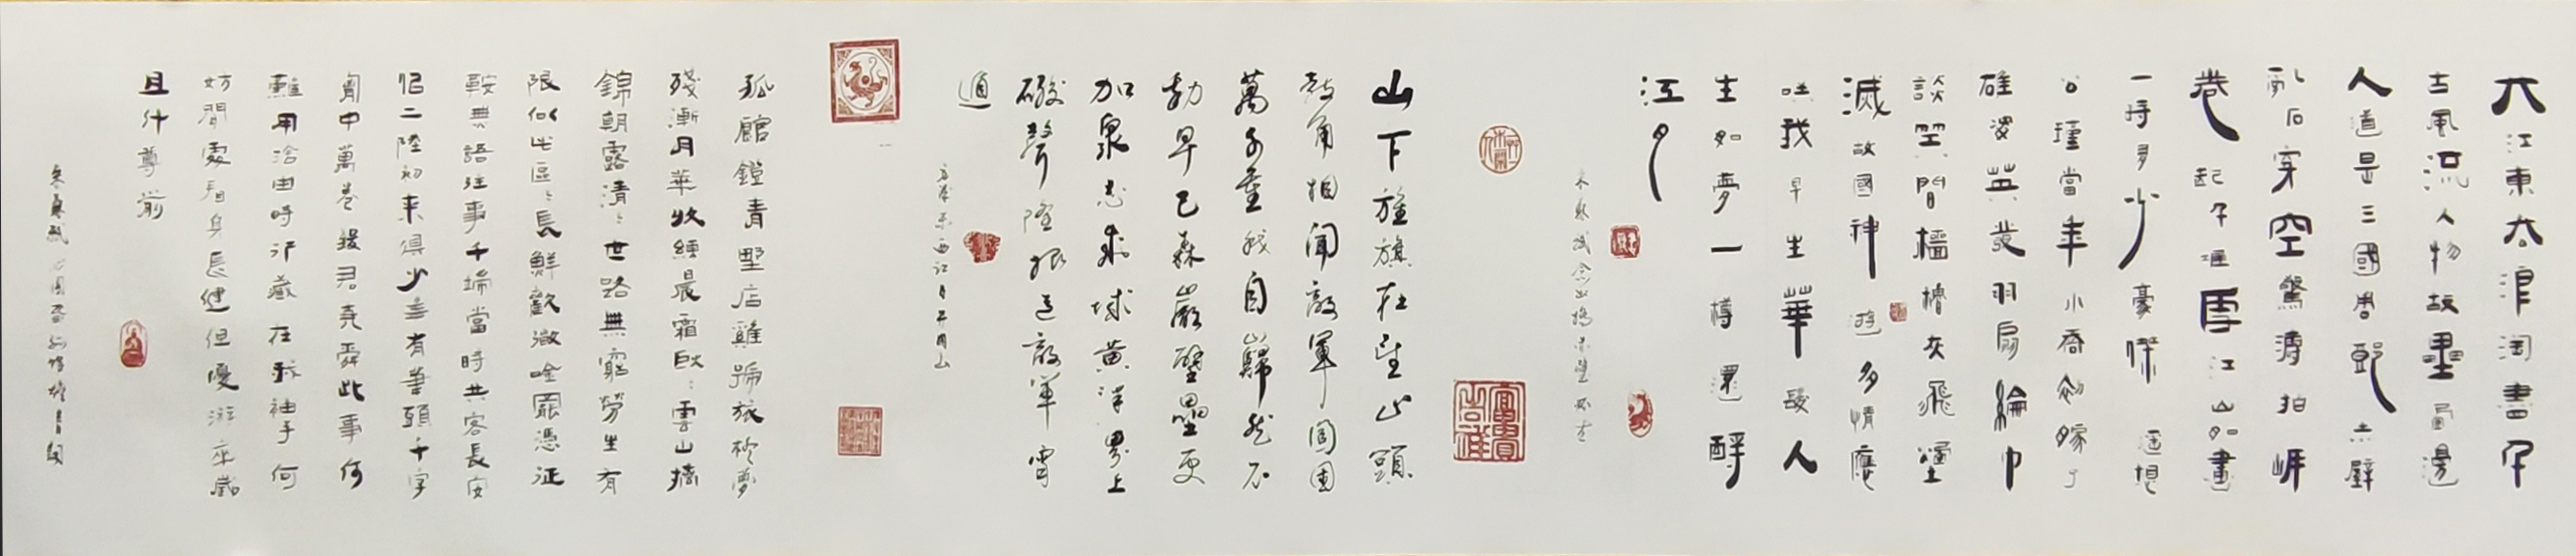 大江東去浪淘盡千
古風流人物故壘西邊
人道是三國周郎赤壁
亂石穿空驚濤拍岸
捲起千堆雪江山如畫
一時多少豪傑遥想
公瑾當年小喬初嫁了
雄姿英發羽扇綸巾
談笑間檣櫓灰飛堙
滅故國神遊多情應
笑我早生華髮人
生如夢一樽還酹
江月
山下旌旗在望山頭
鼓角相聞敵軍圍困
萬千重我自巋然不
動早已森嚴壁壘更
加衆志成城黄洋界上
砲聲隆報道敵軍宵
遁
西江月井岡山
孤館鐙青野店雞號旅枕夢
殘漸月華收練晨霜耿〻雲山摛
錦朝露溥〻世路無窮勞生有
限似此區〻長鮮歡微吟罷憑征
鞍無語往事千端當時共客長安
似二陸初来俱少年有筆頭千字
胸中萬卷致君堯舜此事何
難用舍由時行藏在我袖手何
妨閒處看身長健但優游卒歲
且鬥尊前